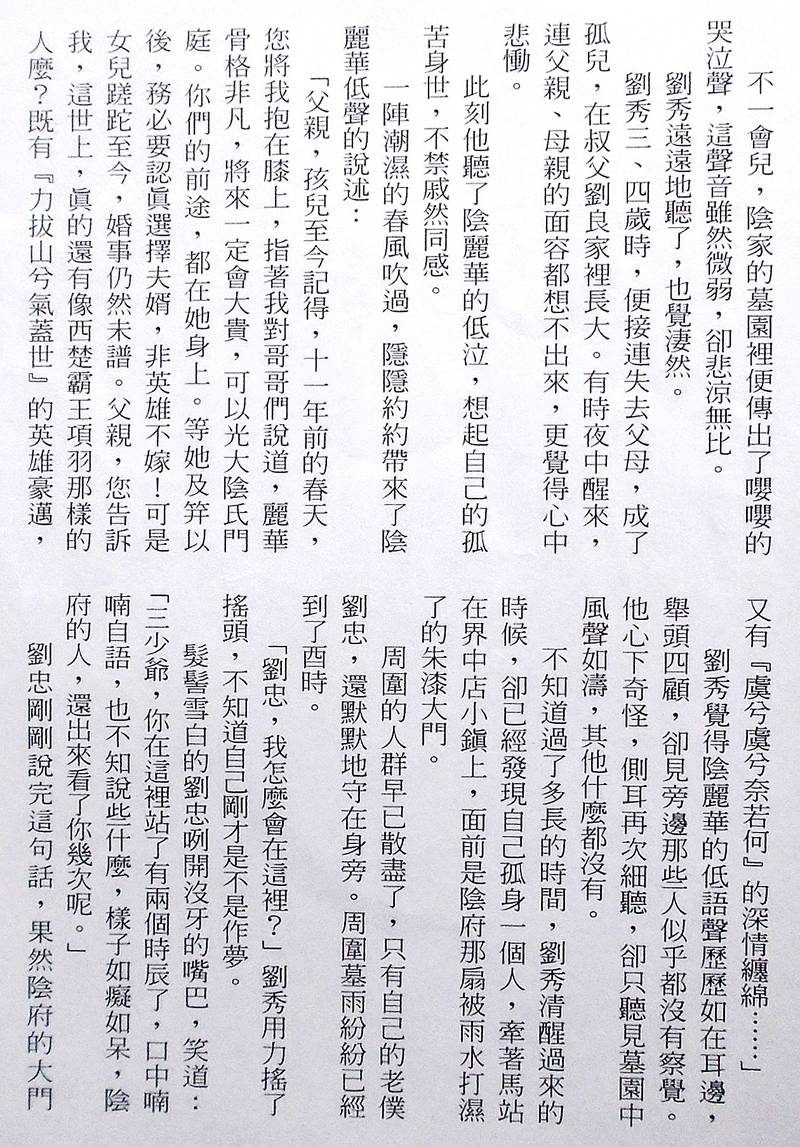 不一會兒，陰家的墓園裡便傳出了嚶嚶的
哭泣聲，這聲音雖然微弱，卻悲涼無比。
劉秀遠遠地聽了，也覺淒然。
劉秀三、四歲時，便接連失去父母，成了
孤兒，在叔父劉良家裡長大。有時夜中醒來，
連父親、母親的面容都想不出來，更覺得心中
悲慟。
此刻他聽了陰麗華的低泣，想起自己的孤
苦身世，不禁戚然同感。
一陣潮濕的春風吹過，隱隱約約帶來了陰
麗華低聲的說述：
「父親，孩兒至今記得，十一年前的春天，
您將我抱在膝上，指著我對哥哥們說道，麗華
骨格非凡，將來一定會大貴，可以光大陰氏門
庭。你們的前途，都在她身上。等她及笄以
後，務必要認真選擇夫婿，非英雄不嫁！可是
女兒蹉跎至今，婚事仍然未譜。父親，您告訴
我，這世上，真的還有像西楚霸王項羽那樣的
人麼？既有『力拔山兮氣蓋世』的英雄豪邁，
又有『虞兮虞兮奈若何』的深情纏綿……」
劉秀覺得陰麗華的低語聲歷歷如在耳邊，
舉頭四顧，卻見旁邊那些人似乎都沒有察覺。
他心下奇怪，側耳再次細聽，卻只聽見墓園中
風聲如濤，其他什麼都沒有。
不知道過了多長的時間，劉秀清醒過來的
時候，卻已經發現自己孤身一個人，牽著馬站
在界中店小鎮上，面前是陰府那扇被雨水打濕
了的朱漆大門。
周圍的人群早已散盡了，只有自己的老僕
劉忠，還默默地守在身旁。周圍墓雨紛紛已經
到了酉時。
「劉忠，我怎麼會在這裡？」劉秀用力搖了
搖頭，不知道自己剛才是不是作夢。
髮髻雪白的劉忠咧開沒牙的嘴巴，笑道：
「三少爺，你在這裡站了有兩個時辰了，口中喃
喃自語，也不知說些什麼，樣子如癡如呆，陰
府的人，還出來看了你幾次呢。」
劉忠剛剛說完這句話，果然陰府的大門